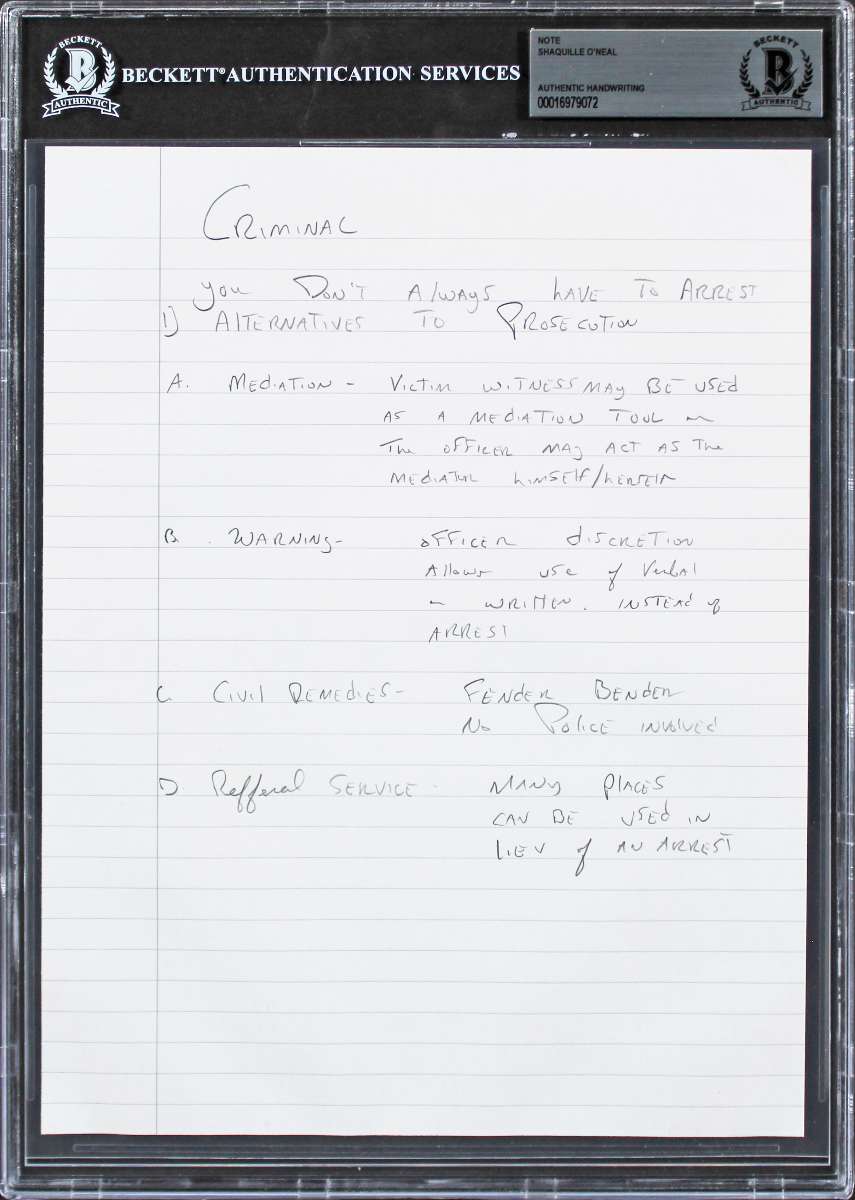 BECKETT
B
AUTHENTIC
BECKETT® AUTHENTICATION SERVICES
NOTE
SHAQUILLE O'NEAL
AUTHENTIC HANDWRITING
00016979072
BECKETT
B
AUTHENTIC
CRIMINAL
you DON'T AlwAys hAVE To ARREST
1) AlTERNATiVES TO PROSECUTION
A. MEdiATION - VicTim wiTNESS MAy BE USEd
AS A MEdiATION TOOL or
The oFFICER MAy ACT AS The
MEdiATOR himSElf/hERSElf
B. WARNING- oFFICER diSCRETION
Allows use of Verbal
or WRITTEN. INSTEAd of
ARREST
C. Civil REMEdiES- FENdER BENdER
No PoliCE iNVolVEd
D Refferal SERVICE - MANy PlACES
CAN BE USEd IN
liEU of AN ARREST